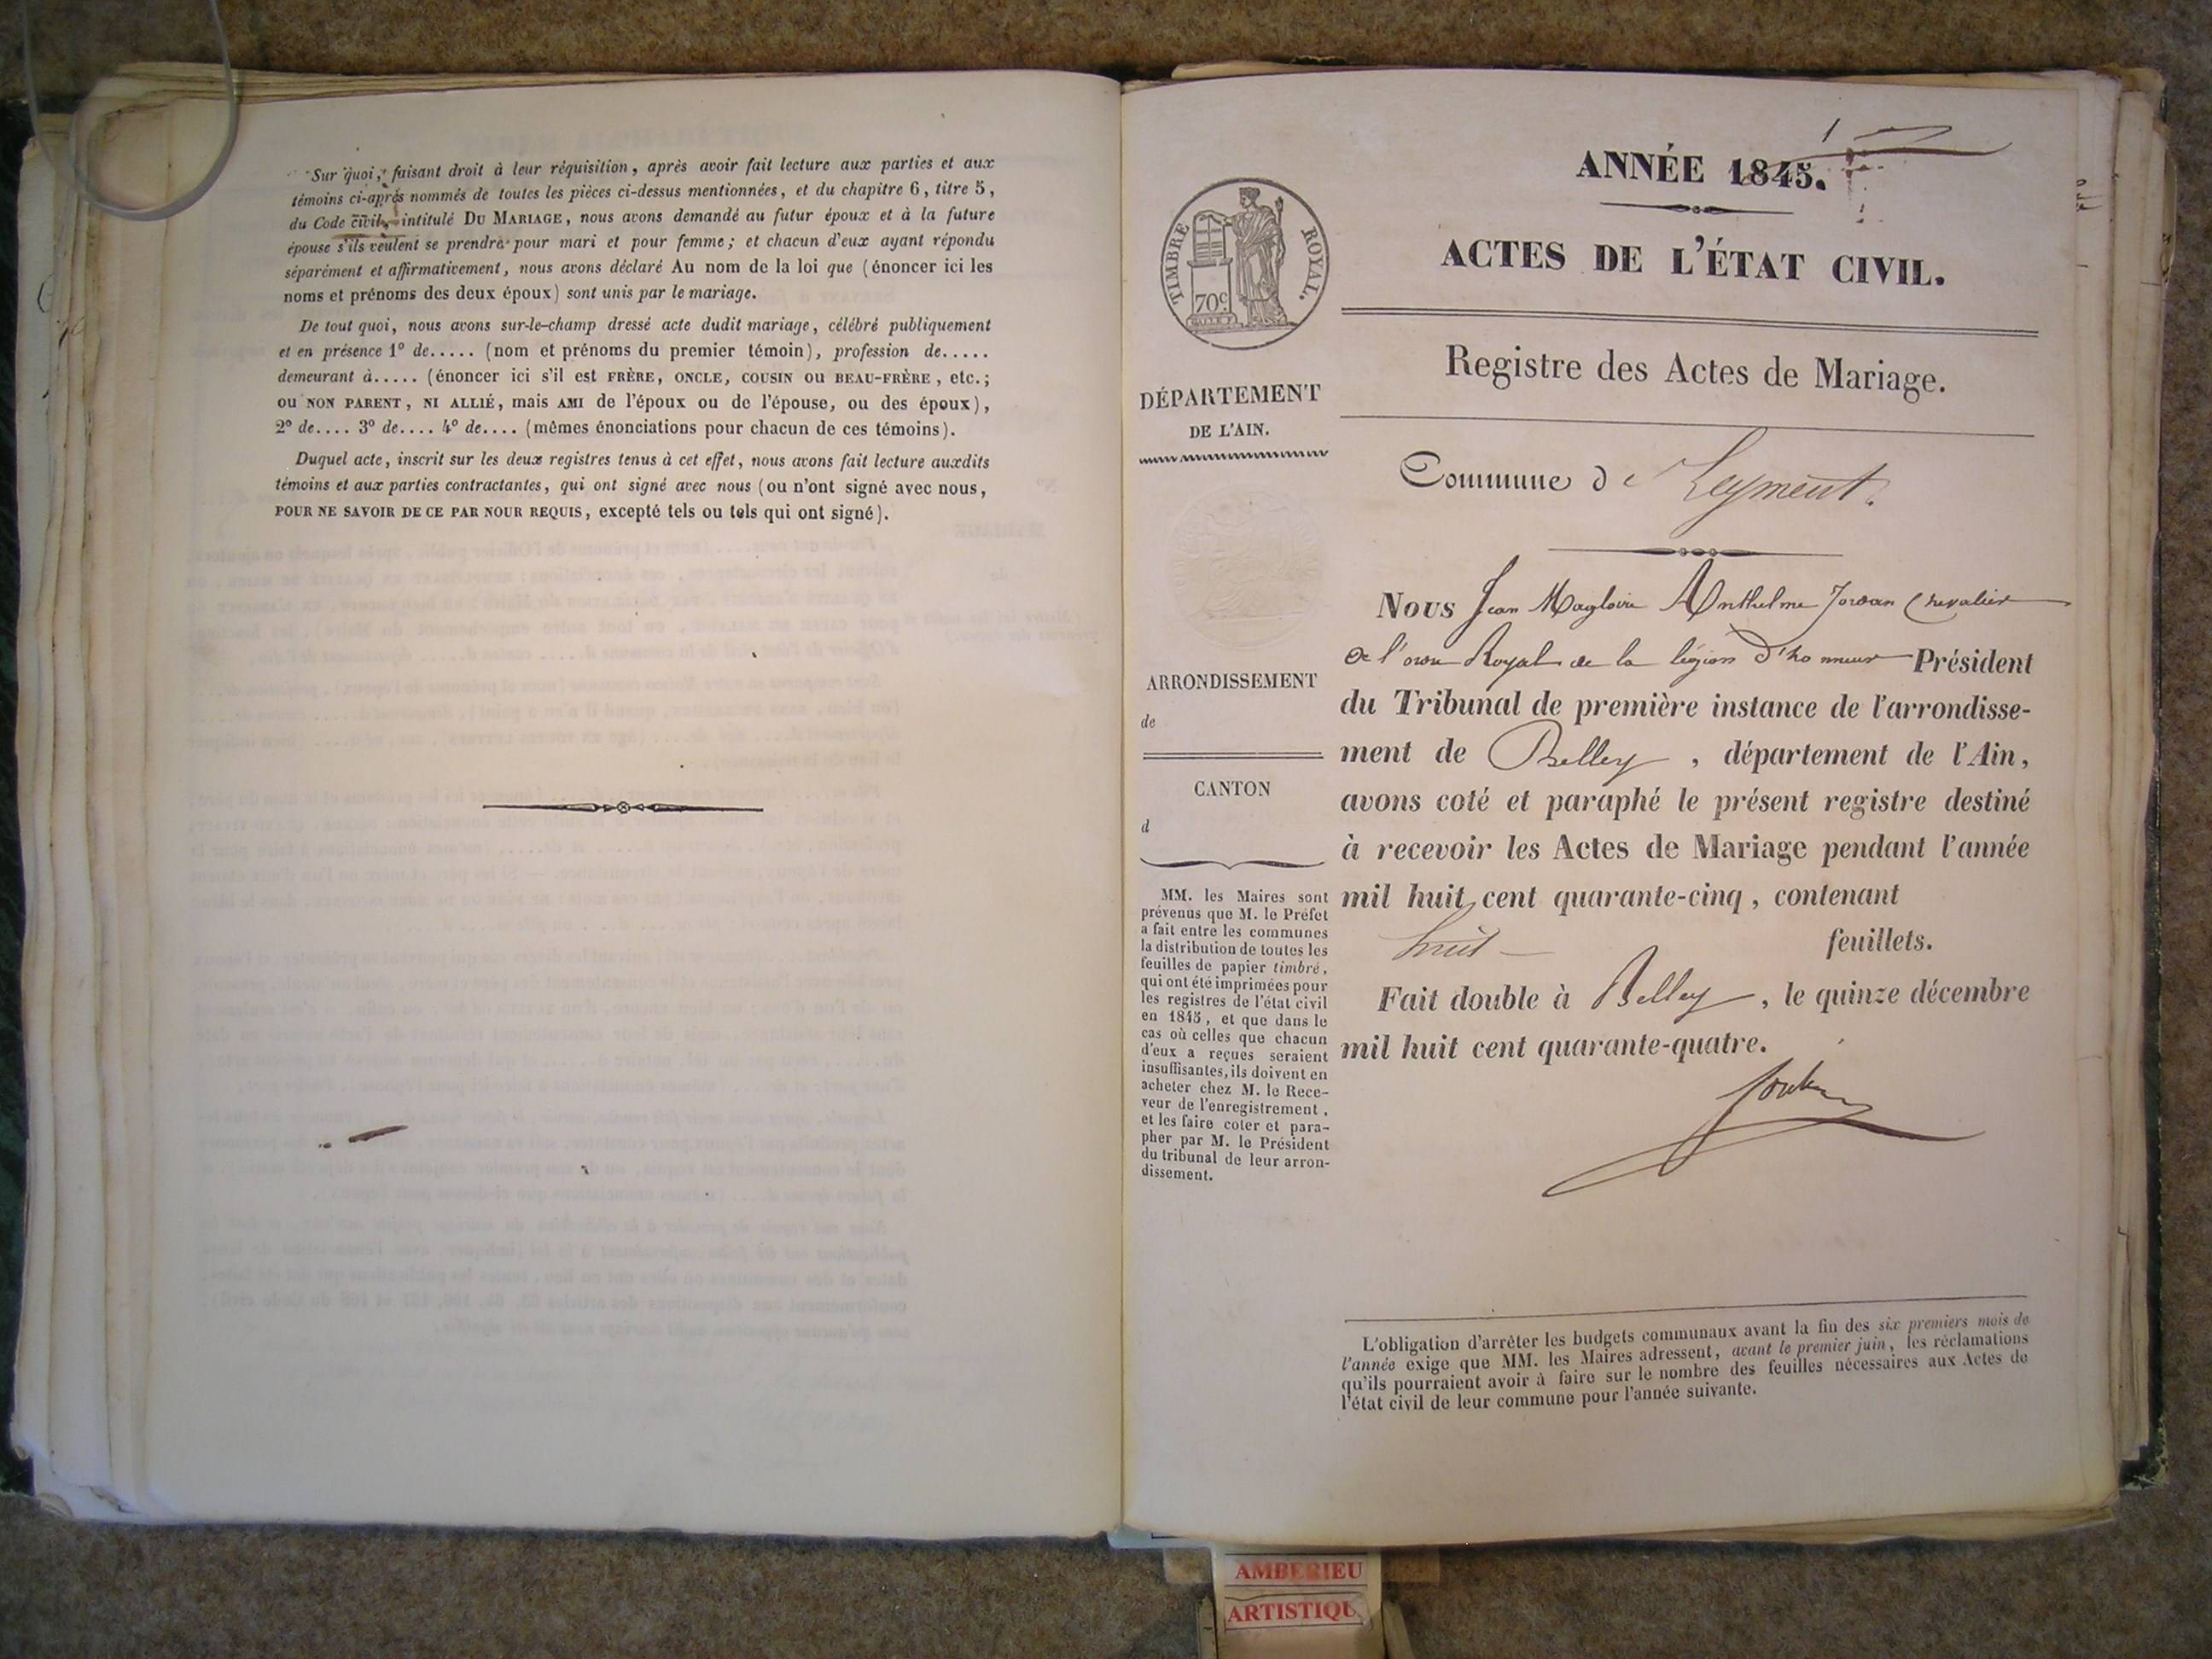 Sur quoi, faisant droit à leur réquisition, après avoir fait lecture aux parties et aux
témoins ci-après nommés de toutes les pièces ci-dessus mentionnées, et du chapitre 6, titre 5,
du Code civil, intitulé DU MARIAGE, nous avons demandé au futur époux et à la future
épouse s'ils veulent se prendre pour mari et pour femme; et chacun d'eux ayant répondu
séparément et affirmativement, nous avons déclaré Au nom de la loi que (énoncer ici les
noms et prénoms des deux époux) sont unis par le mariage.
De tout quoi, nous avons sur-le-champ dressé acte dudit mariage, célébré publiquement
et en présence 1º de..... (nom et prénoms du premier témoin), profession de.....
demeurant à..... (énoncer ici s'il est FRÈRE, ONCLE, COUSIN ou BEAU-FRÈRE, etc.;
ou NON PARENT, NI ALLIÉ, mais AMI de l'époux ou de l'épouse, ou des époux),
2º de.... 3º de.... 4º de.... (mêmes énonciations pour chacun de ces témoins).
Duquel acte, inscrit sur les deux registres tenus à cet effet, nous avons fait lecture auxdits
témoins et aux parties contractantes, qui ont signé avec nous (ou n'ont signé avec nous,
POUR NE SAVOIR DE CE PAR NOUR REQUIS, excepté tels ou tels qui ont signé).
1
ANNÉE 1845.
ACTES DE L'ÉTAT CIVIL.
TIMBRE ROYAL.
70c
Registre des Actes de Mariage.
DÉPARTEMENT
DE L'AIN.
Commune de Leyment.
Nous Jean Magloire Anthelme Jordan Chevalier
de l'ordre Royal de la légion d'honneur Président
du Tribunal de première instance de l'arrondisse-
ment de Belley, département de l'Ain,
avons coté et paraphé le présent registre destiné
à recevoir les Actes de Mariage pendant l'année
mil huit cent quarante-cinq, contenant
huit feuillets.
Fait double à Belley, le quinze décembre
mil huit cent quarante-quatre.
Jordan
ARRONDISSEMENT
de
CANTON
d
MM. les Maires sont
prévenus que M. le Préfet
a fait entre les communes
la distribution de toutes les
feuilles de papier timbré,
qui ont été imprimées pour
les registres de l'état civil
en 1845, et que dans le
cas où celles que chacun
d'eux a reçues seraient
insuffisantes, ils doivent en
acheter chez M. le Rece-
veur de l'enregistrement,
et les faire coter et para-
pher par M. le Président
du tribunal de leur arron-
dissement.
L'obligation d'arrêter les budgets communaux avant la fin des six premiers mois de
l'année exige que MM. les Maires adressent, avant le premier juin, les réclamations
qu'ils pourraient avoir à faire sur le nombre des feuilles nécessaires aux Actes de
l'état civil de leur commune pour l'année suivante.
AMBERIEU
ARTISTIQU